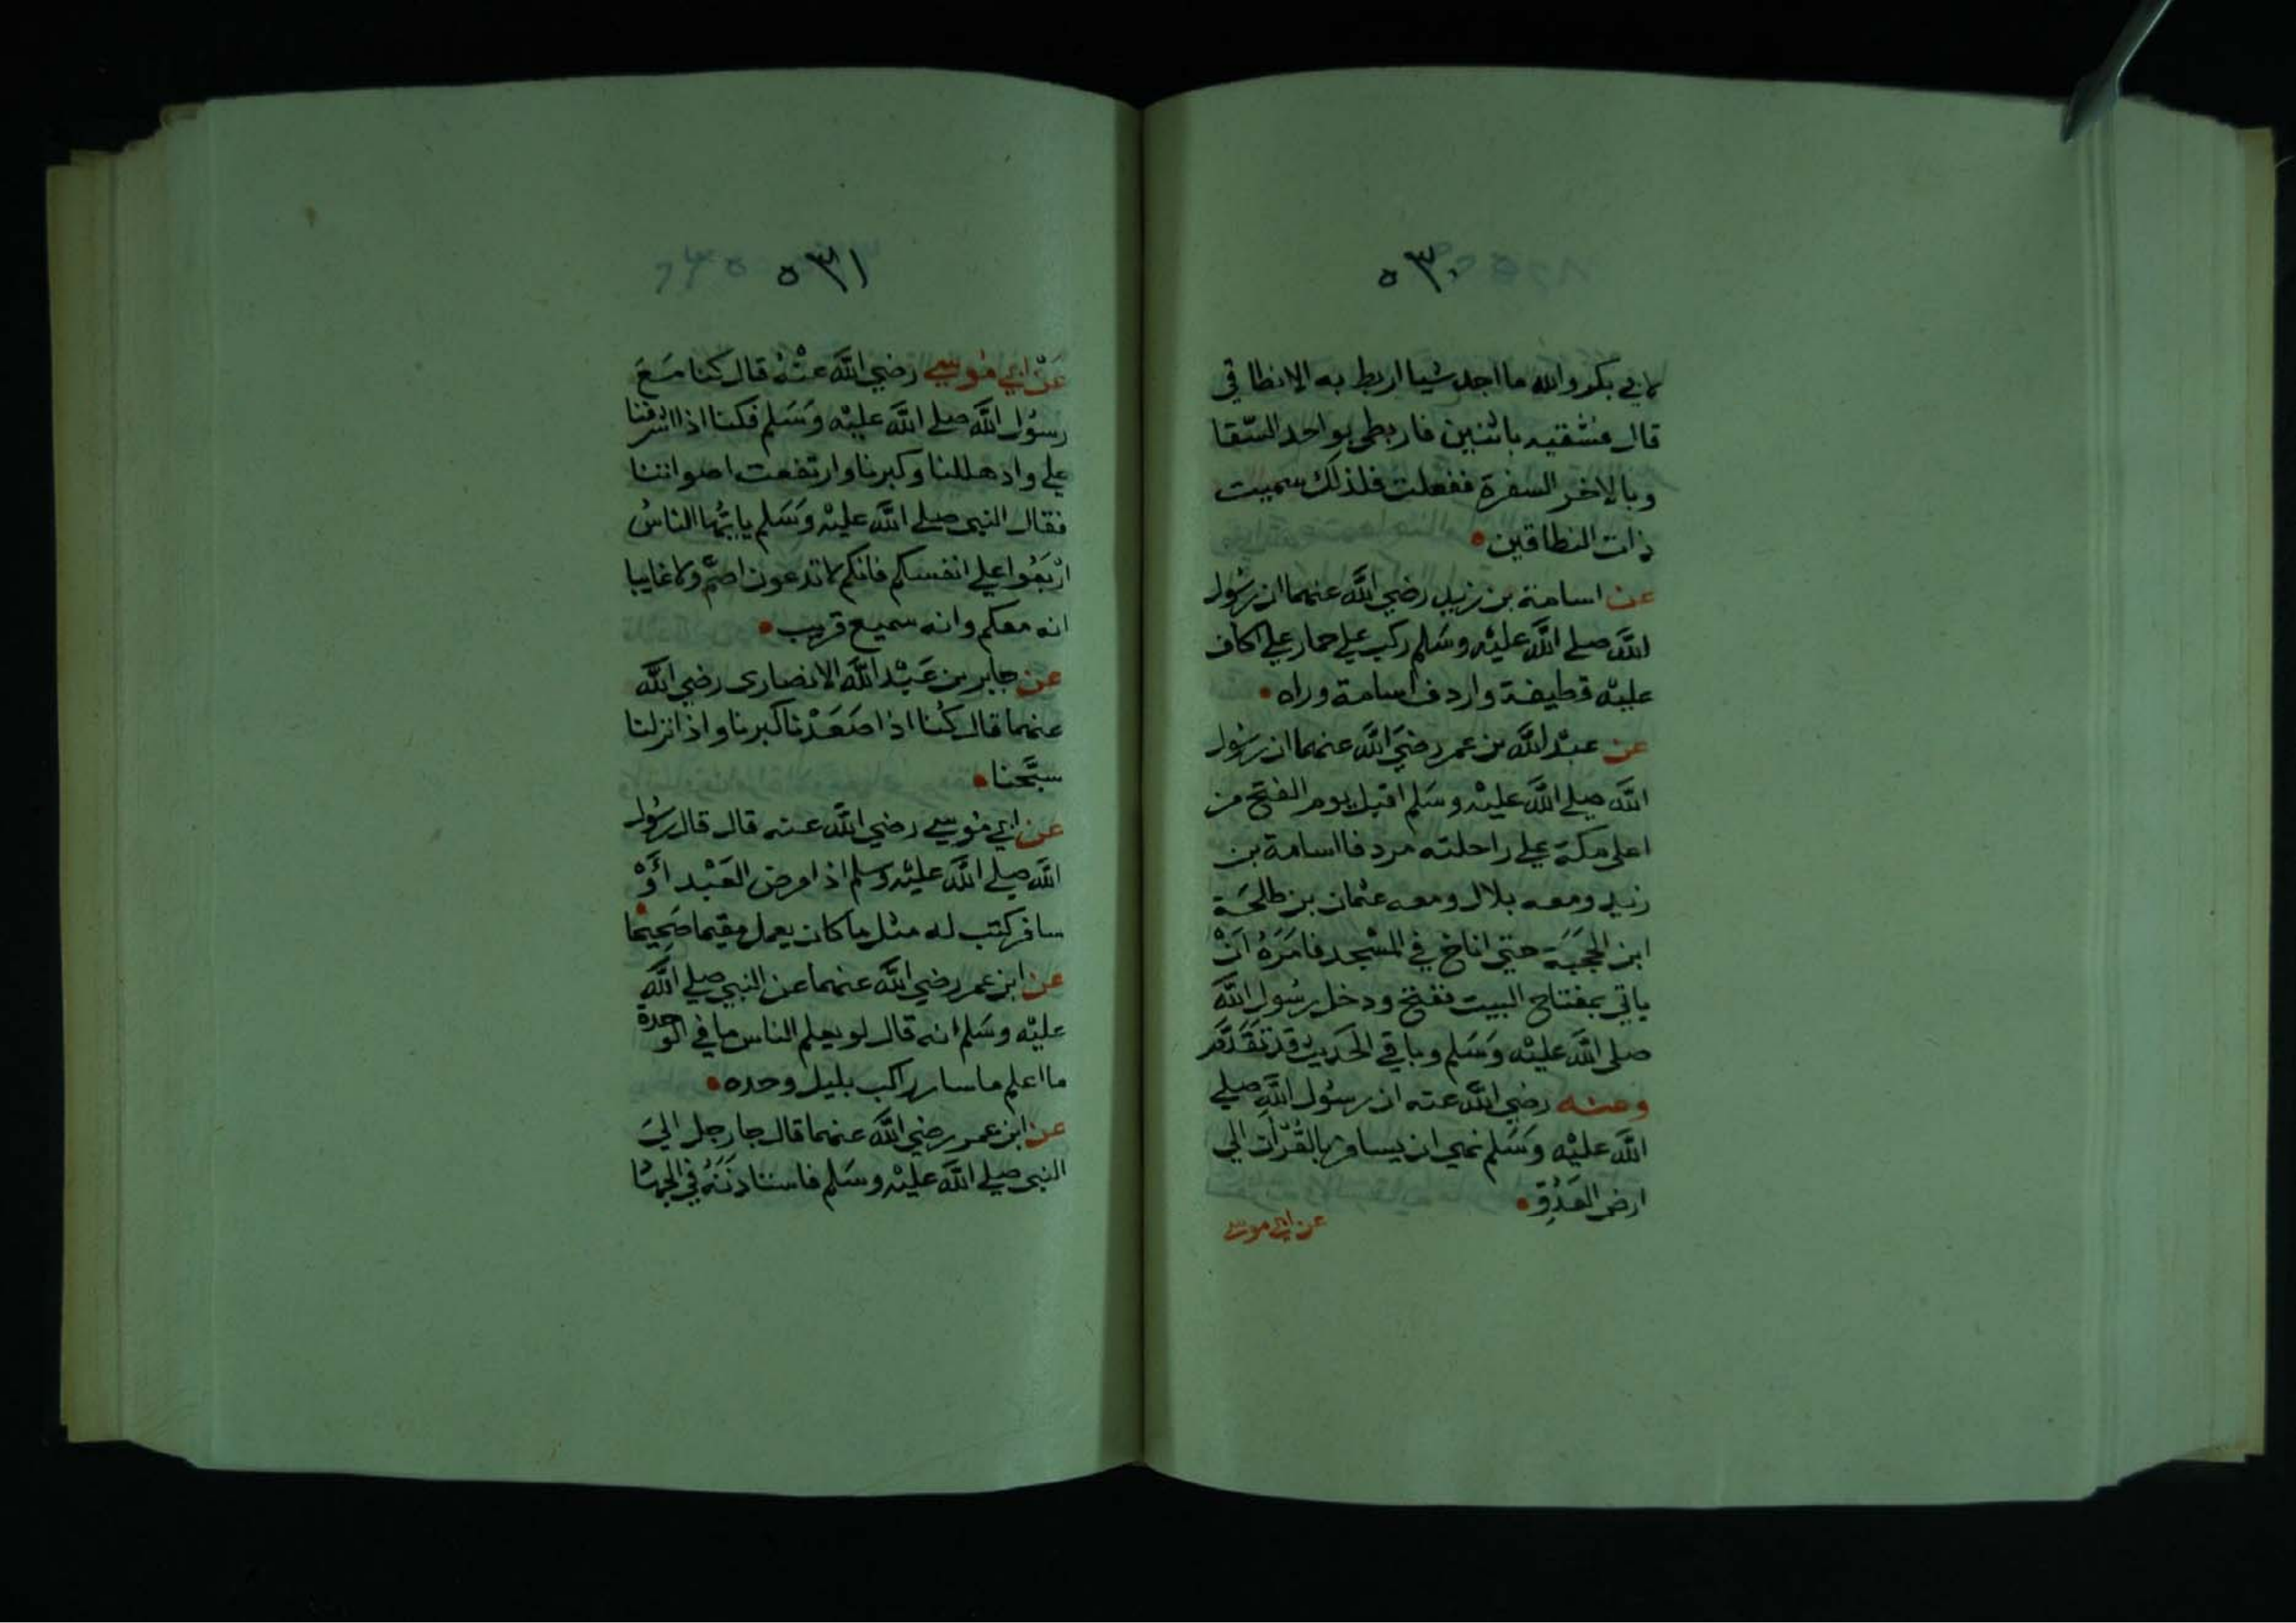 ٥٣٠
لابي بكر والله ما اجد شيا اربط به الا نطاقي
قال فشقيه باثنين فاربطي بواحد السقا
وبالاخر السفرة ففعلت فلذلك سميت
ذات النطاقين
عن اسامة بن زيد رضي الله عنهما ان رسول
الله صلى الله عليه وسلم ركب علي حمار علي اكاف
عليه قطيفة واردف اسامة وراه
عن عبد الله بن عمر رضي الله عنهما ان رسول
الله صلى الله عليه وسلم اقبل يوم الفتح من
اعلى مكة علي راحلته مردفا اسامة بن
زيد ومعه بلال ومعه عثمان بن طلحة
ابن الحجبة حتى اناخ في المسجد فامره ان
ياتي بمفتاح البيت ففتح ودخل رسول الله
صلى الله عليه وسلم وباقي الحديث قد تقدم
وعنه رضي الله عنه ان رسول الله صلي
الله عليه وسلم نهي ان يسافر بالقران الي
ارض العدو
عن ابي موسى
٥٣١
عن ابي موسي رضي الله عنه قال كنا مع
رسول الله صلي الله عليه وسلم فكنا اذا اشرفنا
علي واد هللنا وكبرنا وارتفعت اصواتنا
فقال النبي صلي الله عليه وسلم يايها الناس
اربعوا علي انفسكم فانكم لا تدعون اصم ولا غايبا
انه معكم وانه سميع قريب
عن جابر بن عبد الله الانصاري رضي الله
عنهما قال كنا اذا صعدنا كبرنا واذا نزلنا
سبحنا
عن ابي موسي رضي الله عنه قال قال رسول
الله صلي الله عليه وسلم اذا مرض العبد او
سافر كتب له مثل ما كان يعمل مقيما صحيحا
عن ابن عمر رضي الله عنهما عن النبي صلي الله
عليه وسلم انه قال لو يعلم الناس ما في الوحدة
ما اعلم ما سار راكب بليل وحده
عن ابن عمر رضي الله عنهما قال جا رجل الي
النبي صلي الله عليه وسلم فاستاذنه في الجهاد